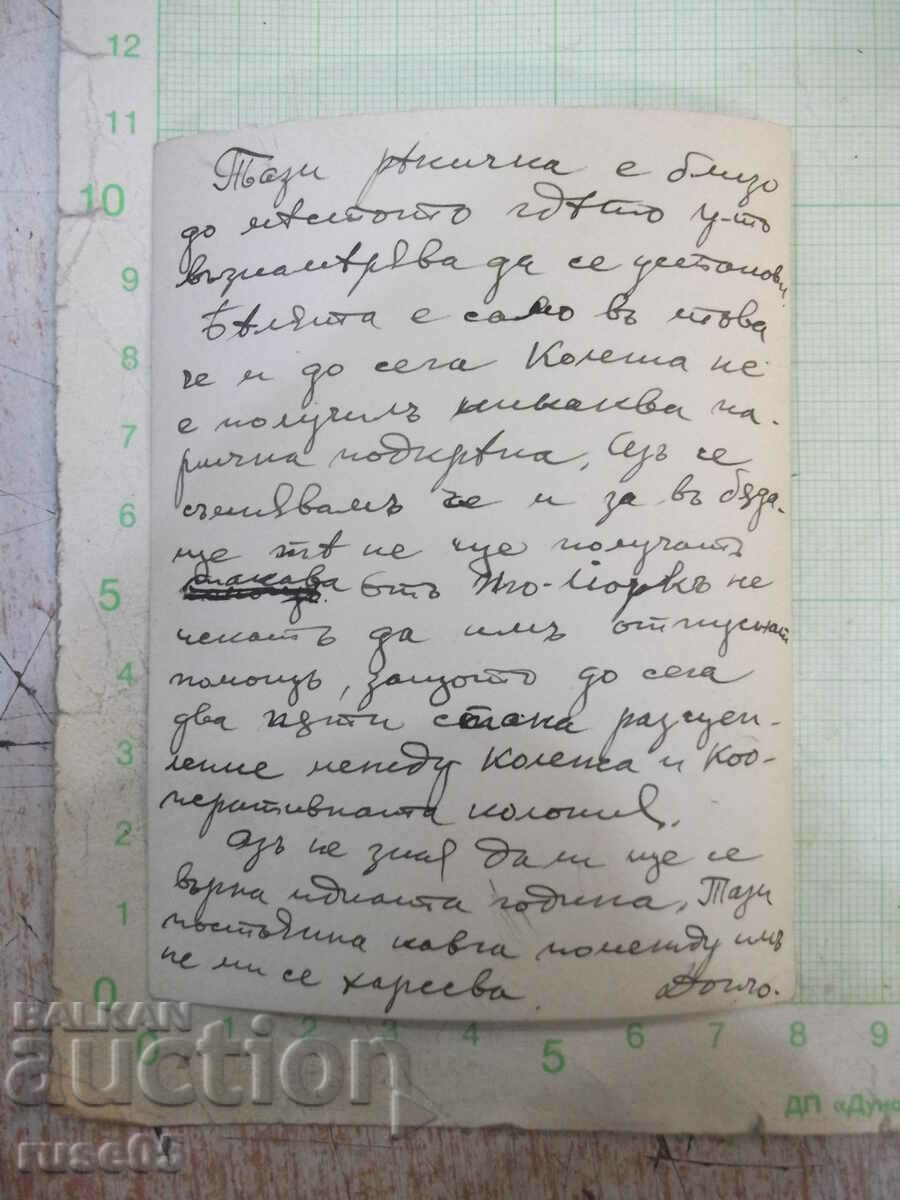 12
11
10
9
8
7
6
5
4
3
2
1
0
Тази рѣкичка е близо
до мѣстото гдѣто у-то
възнамѣрява да се установи.
Бѣлята е само въ това
че и до сега Колежа не
е получилъ никаква па-
рична подкрѣпа. Азъ се
съмнявамъ че и за въ бѫда-
ще тѣ не ще получатъ
такава. Отъ Ню-Йоркъ не
искатъ да имъ отпуснат
помощь, защото до сега
два пѫти стана разцеп-
ление между Колежа и Коо-
перативната колония.
Азъ не зная дали ще се
върна идната година. Тази
постоянна кавга помежду имъ
не ми се харесва. Дончо.
0 1 2 3 4 5 6 7 8 9
ДП «Дун
BALKAN
auction
ruse05